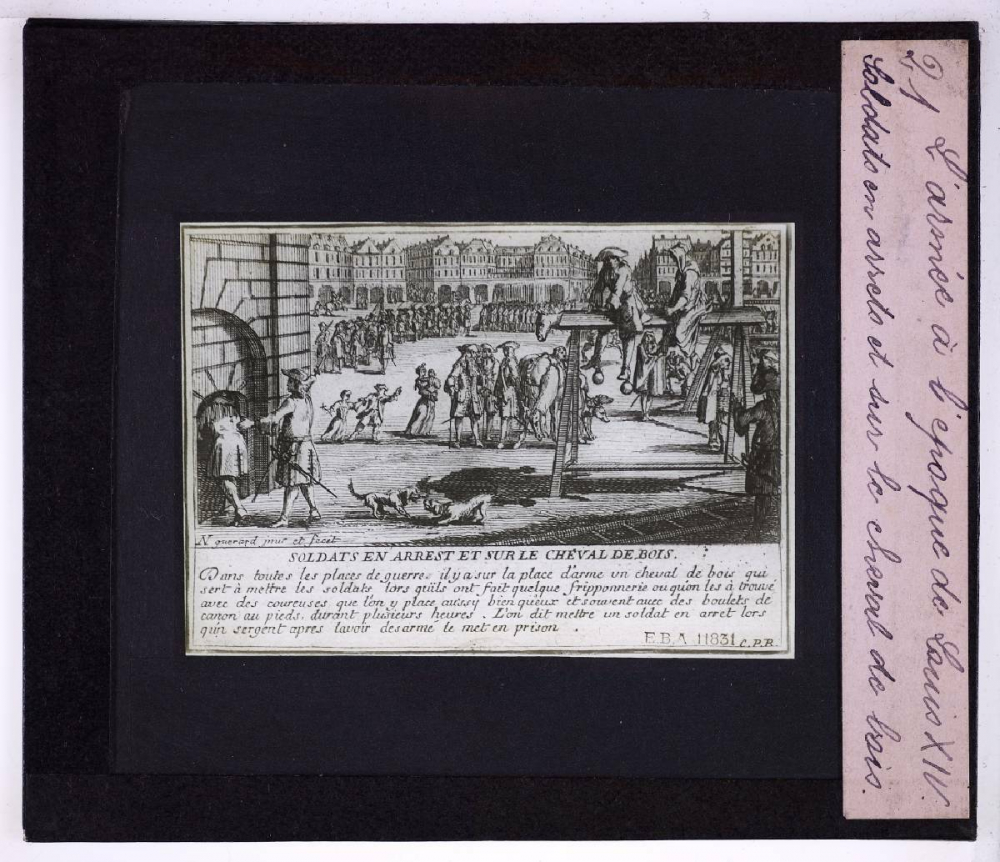 21 L'armée à l'époque de Louis XIV.
Soldats en arrets et sur le cheval de bois.
N guerard inv et fecit
SOLDATS EN ARREST ET SUR LE CHEVAL DE BOIS.
Dans toutes les places de guerre il y a sur la place d'arme vn cheval de bois qui
sert à mettre les soldats lors qu'ils ont fait quelque fripponnerie ou qu'on les à trouvé
avec des coureuses que l'on y place aussy bien qu'eux et souvent avec des boulets de
canon au pieds, durant plusieurs heures. L'on dit mettre un soldat en arret lors
qu'n sergent apres l'avoir desarmé le met en prison.
E.B.A 11831 C.P.R.